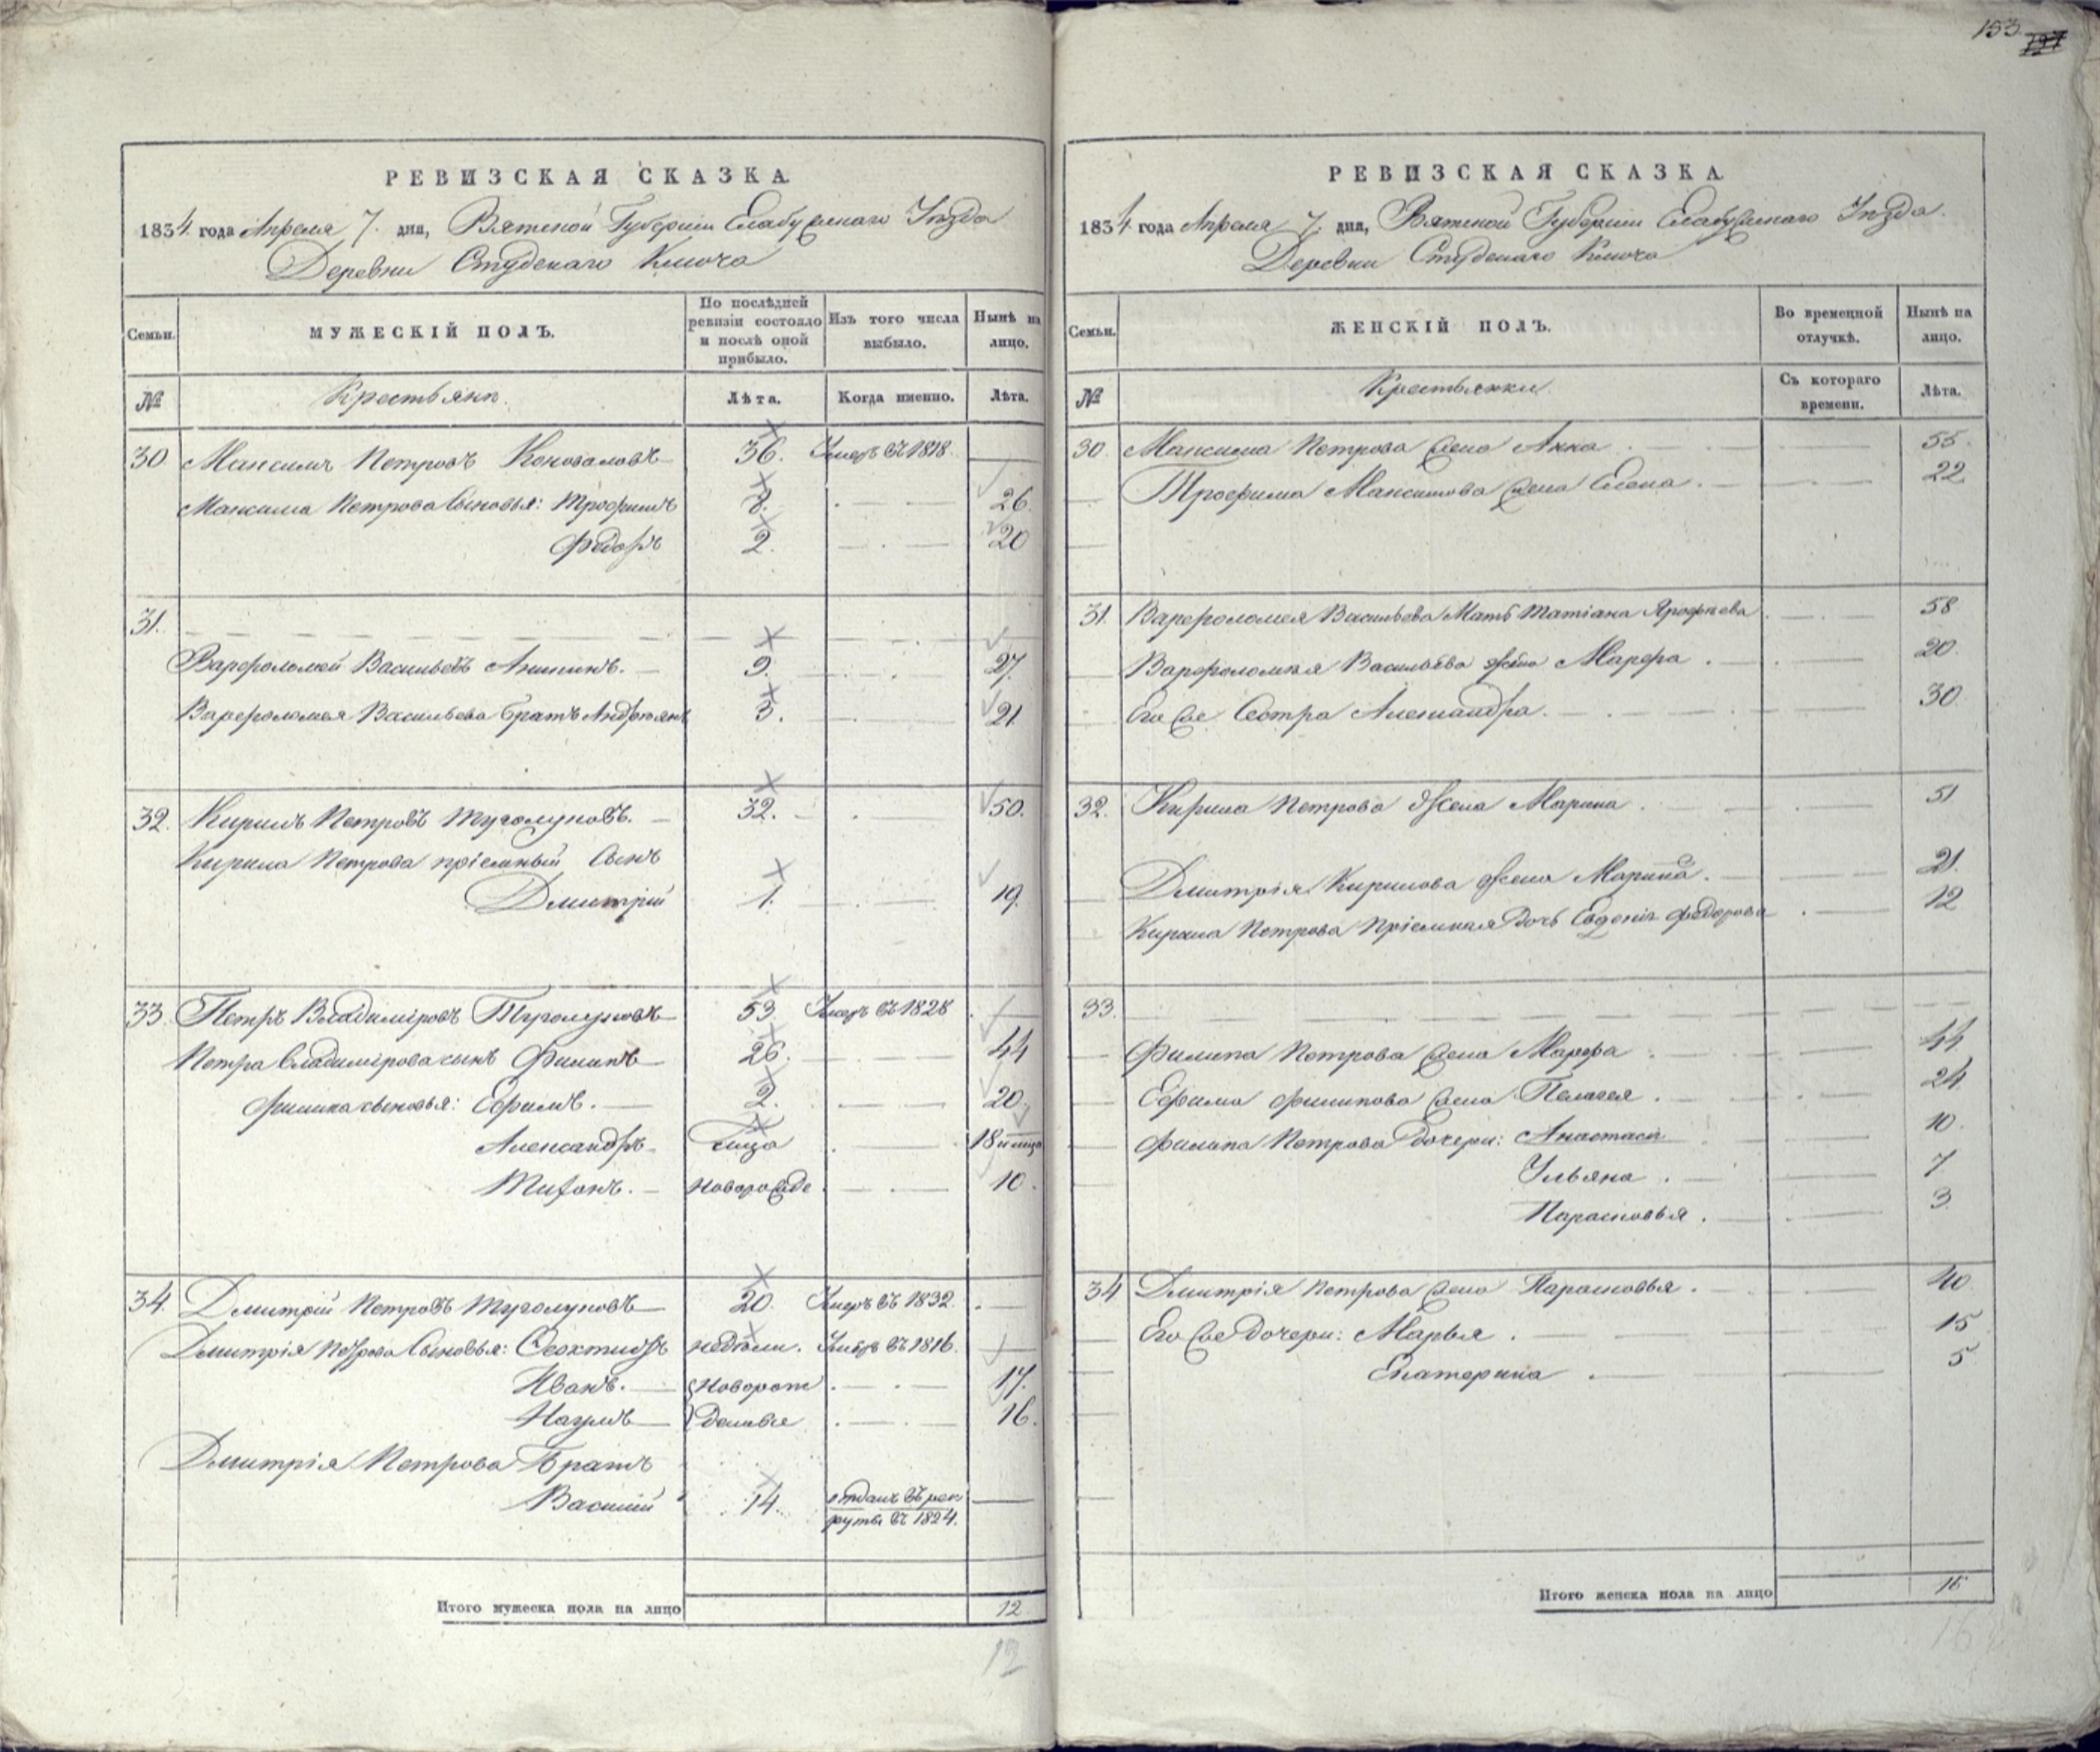 153.
РЕВИЗСКАЯ СКАЗКА.
1834 года Апреля 7. дня, Вятской Губернии Елабужскаго Уѣзда
Деревни Студенаго Ключа
Семьи.
МУЖЕСКІЙ ПОЛЪ.
По послѣдней ревизіи состояло и послѣ оной прибыло.
Изъ того числа выбыло.
Нынѣ на лицо.
№
Крестьянъ.
Лѣта.
Когда именно.
Лѣта.
30 Максимъ Петровъ Коноваловъ 36. Умеръ въ 1818
Максима Петрова Сыновья: Трофимъ 8. 26.
Федоръ 2. 20
31.
Варфоломей Васильевъ Аникинъ. 9. 27.
Варфоломея Васильева братъ Андреянъ 3. 21
32. Кирилъ Петровъ Туголуковъ. 32. 50.
Кирила Петрова пріемный Сынъ
Дмитрій 1. 19.
33. Петръ Владиміровъ Туголуковъ 53. Умеръ въ 1828
Петра Владимірова сынъ Филипъ 26. 44
Филипа сыновья: Ефимъ. 2. 20.
Александръ 18
Тихонъ. новорожде 10.
34. Дмитрій Петровъ Туголуковъ 20. Умеръ въ 1832.
Дмитрія Петрова Сыновья: Феоктистъ недѣли. Умеръ въ 1816.
Иванъ. Новорож 17.
Наумъ денные 16.
Дмитрія Петрова Братъ
Василій 14. отданъ въ рек
руты въ 1824.
Итого мужеска пола на лицо 12
12
РЕВИЗСКАЯ СКАЗКА.
1834 года Апреля 7. дня, Вятской Губернии Елабужскаго Уѣзда.
Деревни Студенаго Ключа
Семьи.
ЖЕНСКІЙ ПОЛЪ.
Во временной отлучкѣ.
Нынѣ на лицо.
№
Крестьянки.
Съ котораго времени.
Лѣта.
30. Максима Петрова жена Анна 55.
Трофима Максимова жена Елена. 22
31. Варфоломея Васильева Мать Татіана Ярофеева 58
Варфоломея Васильева жена Марфа. 20.
Его же Сестра Александра. 30
32. Кирила Петрова Жена Марина. 51
Дмитрія Кирилова жена Марина. 21.
Кирила Петрова Пріемная дочь Евгенія Федорова 12
33.
Филипа Петрова жена Марфа 44.
Ефима Филипова жена Пелагея. 24
Филипа Петрова дочери: Анастасія 10.
Ульяна. 7
Парасковья. 3.
34 Дмитрія Петрова жена Парасковья. 40
Его же дочери: Марья. 15
Екатерина. 5
Итого женска пола на лицо 16
16